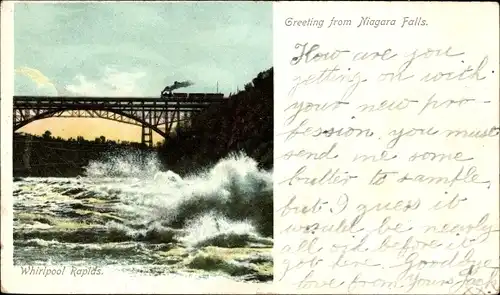 Greeting from Niagara Falls.
How are you
getting on with
your new pro-
fession, you must
send me some
butter to sample,
but I guess it
would be nearly
all oil before it
got here. Goodbye
love from yours Jack
Whirlpool Rapids.